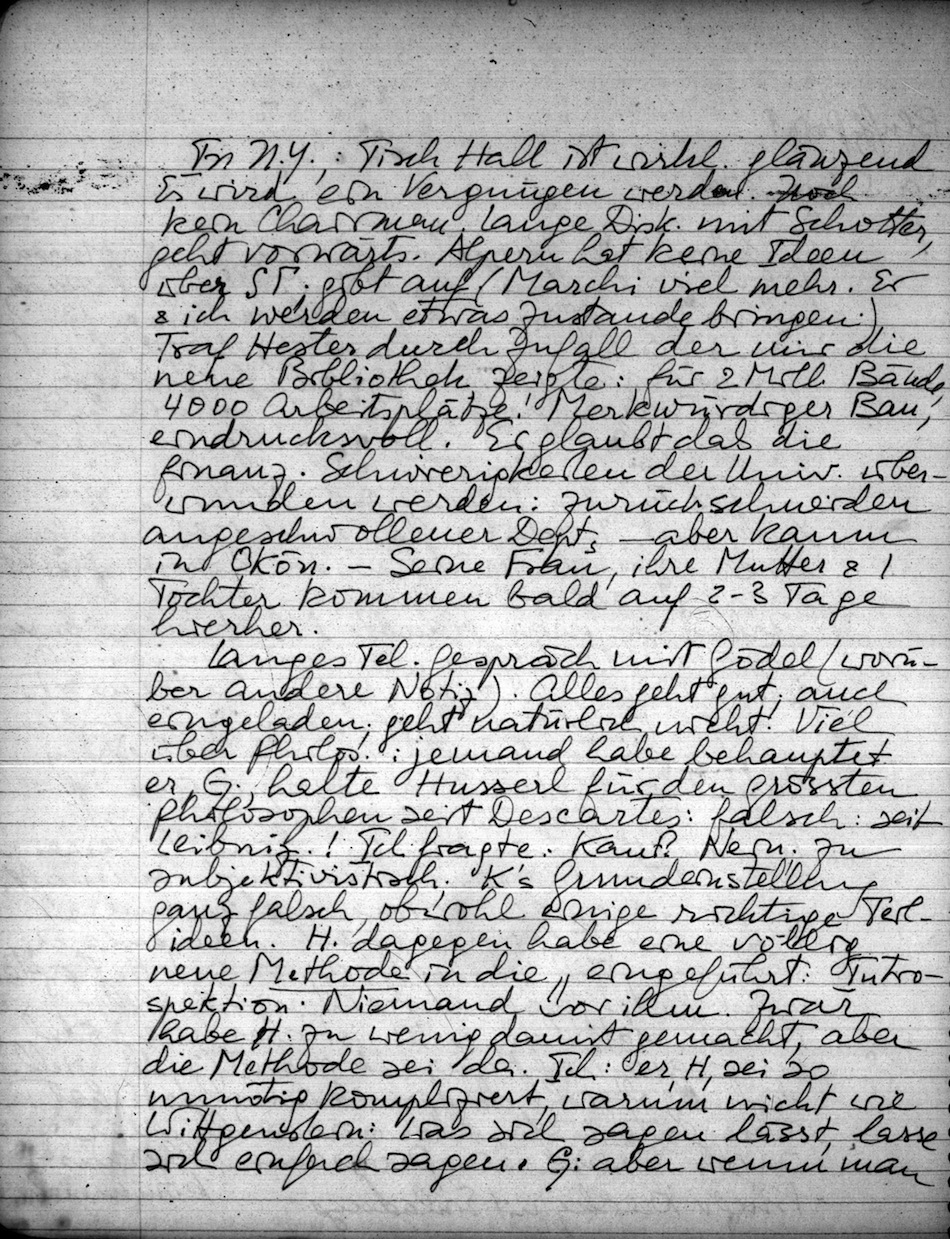 In N.Y.; Tisch Hall ist wirkl. glänzend
Es wird ein Vergnügen werden. Noch
kein Chairman. Lange Disk. mit Schotter,
geht vorwärts. Alpern hat keine Ideen
über ST; gibt auf (Marchi viel mehr. Er
& ich werden etwas zustande bringen.)
Traf Hester durch Zufall der mir die
neue Bibliothek zeigte: für 2 Mill. Bände,
4000 Arbeitsplätze! Merkwürdiger Bau,
eindrucksvoll. Er glaubt daß die
finanz. Schwierigkeiten der Univ. über-
wunden werden: zurückschneiden
angeschwollener Depts. — aber kaum
in Ökon. — Seine Frau, ihre Mutter & 1
Tochter kommen bald auf 2-3 Tage
hierher.
Langes Tel. gespräch mit Gödel (worü-
ber andere Notiz). Alles geht gut; auch
eingeladen; geht natürlich nicht. Viel
über Philos.: jemand habe behauptet
er, G., halte Husserl für den grössten
Philosophen seit Descartes: falsch: seit
Leibniz.! Ich fragte: Kant? Nein. zu
subjektivistisch. K's Grundeinstellung
ganz falsch, obwohl einige richtige Teil-
ideen. H. dagegen habe eine völlig
neue Methode in die „ eingeführt: Intro-
spektion. Niemand vor ihm. Zwar
habe H. zu wenig damit gemacht, aber
die Methode sei da. Ich: er, H, sei so
unnötig kompliziert, warum nicht wie
Wittgenstein: was sich sagen lässt, lasse
sich einfach sagen. G: aber wenn man